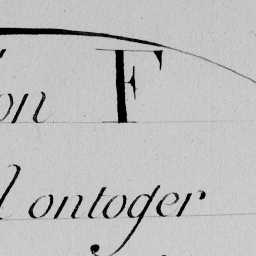 on F
l ontoger